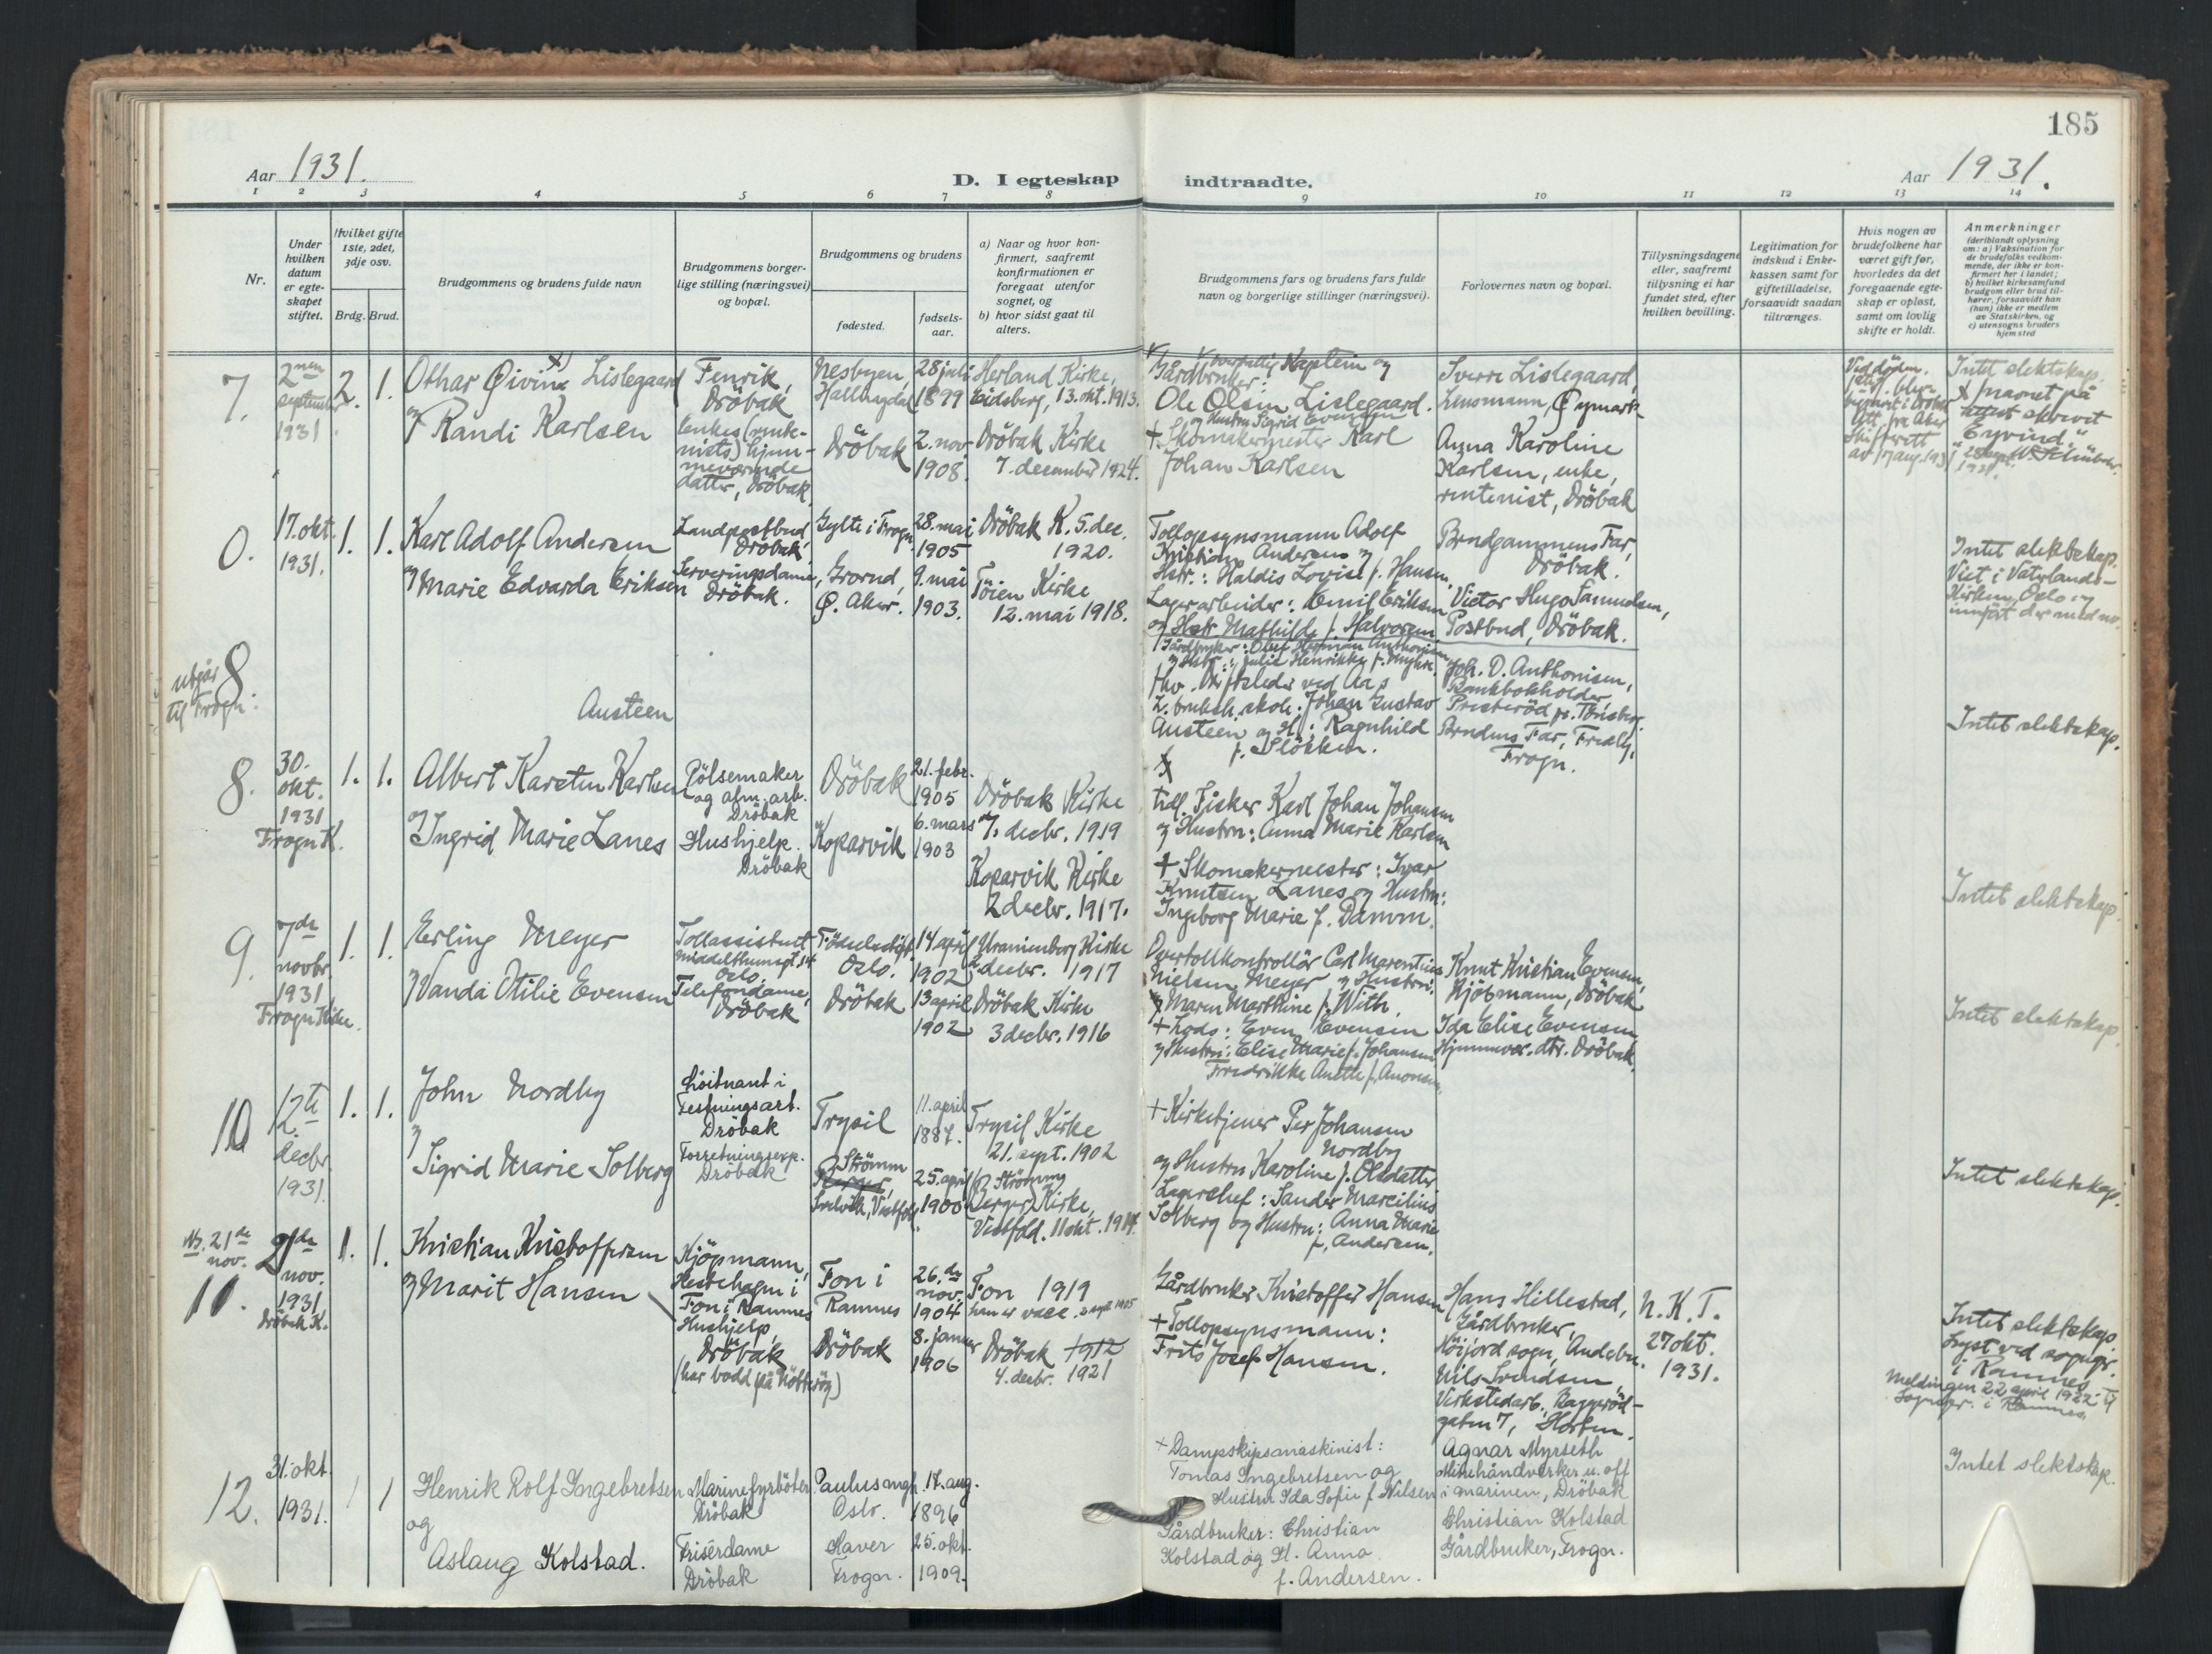 185
Aar 1931.
D. I egteskap indtraadte.
Aar 1931.
1 2 3 4 5 6 7 8 9 10 11 12 13 14
Nr.
Under hvilken datum er egteskapet stiftet.
Hvilket gifte 1ste, 2det, 3dje osv.
Brdg. Brud.
Brudgommens og brudens fulde navn
Brudgommens borgerlige stilling (næringsvei) og bopæl.
Brudgommens og brudens
fødested.
fødselsaar.
a) Naar og hvor konfirmert, saafremt konfirmationen er foregaat utenfor sognet, og
b) hvor sidst gaat til alters.
Brudgommens fars og brudens fars fulde navn og borgerlige stillinger (næringsvei).
Forlovernes navn og bopæl.
Tillysningsdagene eller, saafremt tillysning ei har fundet sted, efter hvilken bevilling.
Legitimation for indskud i Enkekassen samt for giftetilladelse, forsaavidt saadan tiltrænges.
Hvis nogen av brudefolkene har været gift før, hvorledes da det foregaaende egteskap er opløst, samt om lovlig skifte er holdt.
Anmerkninger
(deriblandt oplysning om: a) Vaksination for de brudefolks vedkommende, der ikke er konfirmert her i landet; b) hvilket kirkesamfund brudgom eller brud tilhører, forsaavidt han (hun) ikke er medlem av Statskirken, og c) utensogns bruders hjemsted
7.
2nen september 1931
2. 1.
Othar Øivind x) Lislegaard
og Randi Karlsen
Fenrik, Dröbak
enkes (rentenists) hjemmeværende datter, Dröbak
Nesbyen, Hallingdal
Dröbak
28 juli 1899
2. nov 1908.
Herland Kirke, Eidsberg, 13. okt. 1913.
Dröbak Kirke 7. december 1924.
Gårdbruker: Kaptein og
Ole Olsen Lislegaard.
og Hustru Sigrid Evensen
+ Skomakermester Karl
Johan Karlsen
Sverre Lislegaard
Lensmann, Øymark
Anna Karoline
Karlsen, enke,
rentenist, Dröbak
Ved döden.
Intet slektskap.
x) navnet på
attest skrevet
"Eyvind."
0.
17. okt. 1931.
1. 1.
Karl Adolf Andersen
og Marie Edvarda Eriksen
Landpostbud, Dröbak
Serveringsdame, Dröbak.
Gylte i Frogn
Grorud, Ø. Aker.
28. mai 1905
9. mai 1903.
Dröbak K. 5. dec. 1920.
Töien Kirke 12. mai 1918.
Tollopsynsmann Adolf
Kristian Andersen og
Hstr.: Haldis Lovise f. Hansen.
Lagerarbeider: Emil Eriksen
og Hstr Mathilde f. Halvorsen
Brudgommens Far,
Dröbak.
Victor Hugo Samuelsen,
Postbud, Dröbak.
Intet slektskap.
Viet i Vaterlands-
Kirken, Oslo og
innfört der med no.
utgår til Frogn.
8.
Austeen
Gårdbruker: Olaf Herman Anthonisen
og Hstr.: Julie Henrikke f.
fhv. Driftsleder ved Aas
L. brukssk. skole. Johan Gustav
Austeen og H.: Ragnhild
f. Slökken.
Joh. O. Anthonisen,
Bankbokholder
Presteröd pr. Tönsberg.
Brudens Far,
Frogn.
Intet slektskap.
8.
30. okt. 1931
Frogn K.
1. 1.
Albert Karsten Karlsen
og Ingrid Marie Lanes
Pölsemaker og alm. arb. Dröbak
Hushjelp. Dröbak
Dröbak
Koparvik
21. febr. 1905
6. mars 1903
Dröbak Kirke 7. decbr. 1919
Koparvik Kirke 2 decbr. 1917.
tidl. Fisker Karl Johan Johansen
og Hustru: Anna Marie Karlsen
+ Skomakermester: Ivar
Knutsen Lanes og Hustru:
Ingeborg Marie f. Damm.
Intet slektskap.
9.
7de novbr. 1931
Frogn Kirke.
1. 1.
Erling Meyer
og Vanda Otilie Evensen
Tollassistent
Middelthunsgt. 14
Oslo.
Telefondame, Dröbak
Födselsstift. Oslo.
Dröbak
14 april 1902
13 april 1902
Uranienborg Kirke 2 decbr. 1917
Dröbak Kirke 3 decbr. 1916
Overtollkontrollör Carl Marentius
Nielsen Meyer og Hustru:
Maren Marthine f. With.
+ Lods: Even Evensen
og Hustru: Elise Marie f. Johansen
Fredrikke Anette f.
Knut Kristian Evensen,
Kjöbmann, Dröbak
Ida Elise Evensen,
Hjemmevær. dtr. Dröbak.
Intet slektskap.
10
12te decbr 1931.
1. 1.
John Nordby
og Sigrid Marie Solberg
Löitnant i Festningsart. Dröbak
Forretningsexp. Dröbak
Trysil
Strömm
Svelvik, Vestfold
11. april 1887.
25. april 1900
Trysil Kirke 21. sept. 1902
Strömm
(Berger) Kirke,
Vestfold. 11 okt. 1914.
+ Kirketjener Per Johansen
Nordby
og Hustru Karoline f. Olsdatter
Lagerchef: Sander Marcilius
Solberg og Hustru: Anna Marie
f. Andersen.
Intet slektskap.
Nb. 21de nov.
11.
21de nov. 1931
Dröbak K.
1. 1.
Kristian Kristoffersen
og Marit Hansen
Kjöpmann,
Hestehagen i
Fon i Ramnes
Hushjelp,
Dröbak
(har bodd på Nötteröy)
Fon i Ramnes
Dröbak
26.de nov. 1904
8. januar 1906
Fon 1919
Dröbak 1912
4. decbr. 1921
Gårdbruker Kristoffer Hansen
+ Tollopsynsmann:
Frits Josef Hansen.
Hans Hillestad,
Gårdbruker,
Höijord sogn, Andebu.
Nils Svendsen,
Verkstedarb. Raggeröd-
gaten 7, Horten.
N. K. T.
27 okt.
1931.
Intet slektskap
Lyst ved sognepr.
i Ramnes
Meldingen 22 april 1932 til
Sognepr. i Ramnes.
12.
31. okt. 1931.
1 1
Henrik Rolf Ingebretsen
og
Aslaug Kolstad.
Marinefyrböter
Dröbak
Frisérdame
Dröbak
Paulus mgh. Oslo.
Haver Frogn.
17. aug. 1896
25. okt. 1909.
+ Dampskipsmaskinist:
Tomas Ingebretsen og
Hustru Ida Sofie f. Nilsen
Gårdbruker: Christian
Kolstad og H. Anna
f. Andersen.
Agnar Myrseth
Minehåndverker u. off
i marinen, Dröbak
Christian Kolstad
Gårdbruker, Frogn.
Intet slektskap.